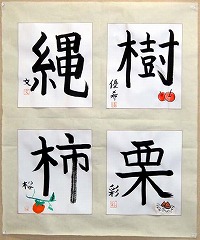 樹
優希
縄
文
栗
彩
柿
桜